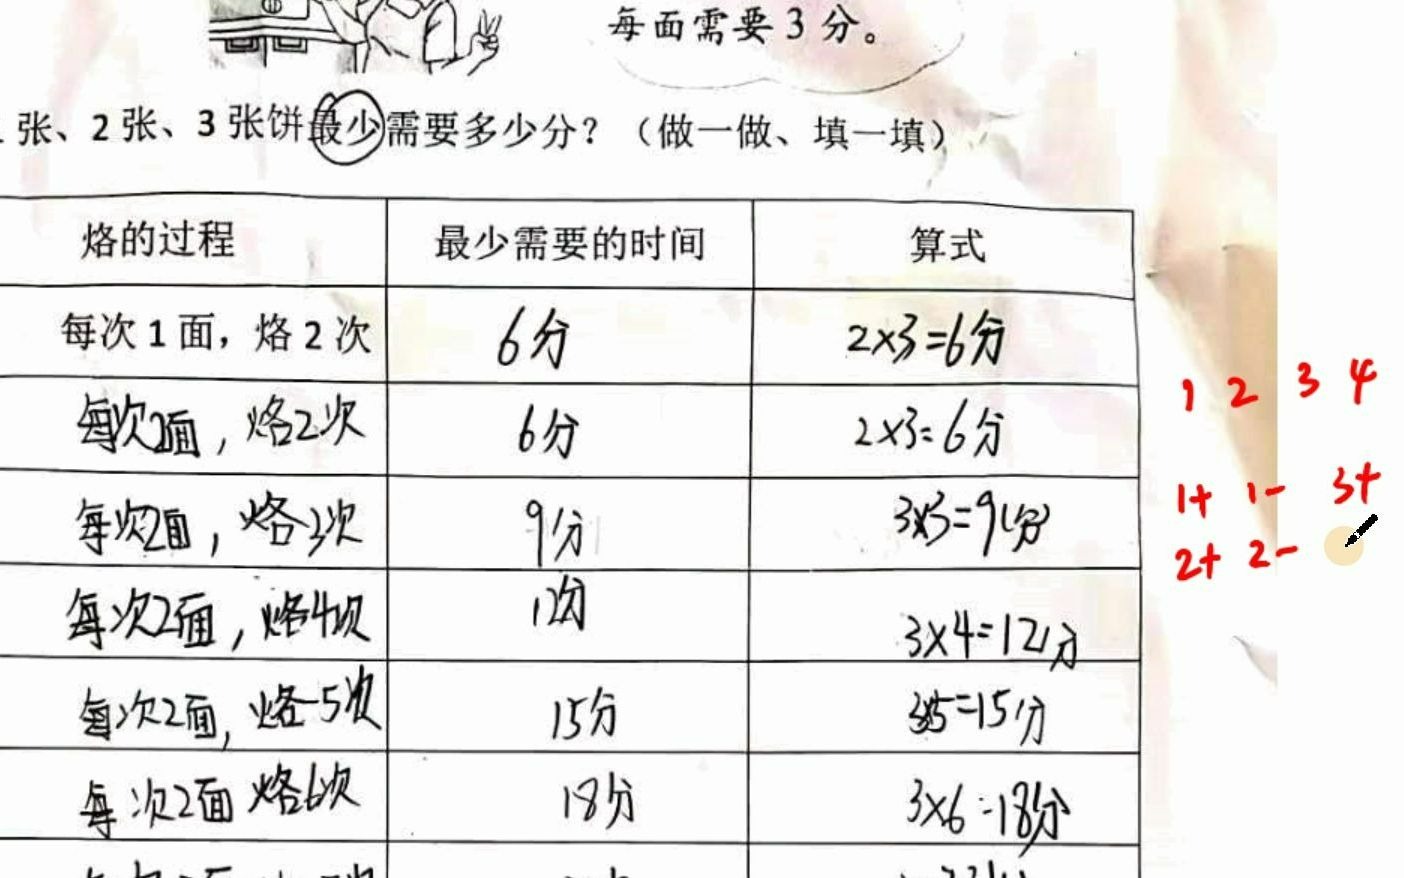 每面需要 3 分。
张、2 张、3 张饼最少需要多少分？（做一做、填一填）
烙的过程 最少需要的时间 算式
每次 1 面，烙 2 次 6分 2×3=6分
每次2面，烙2次 6分 2×3=6分
每次2面，烙3次 9分 3×3=9(分)
每次2面，烙4次 12分 3×4=12分
每次2面，烙5次 15分 3×5=15分
每次2面 烙6次 18分 3×6=18分
1 2 3 4
1+ 1- 3+
2+ 2-